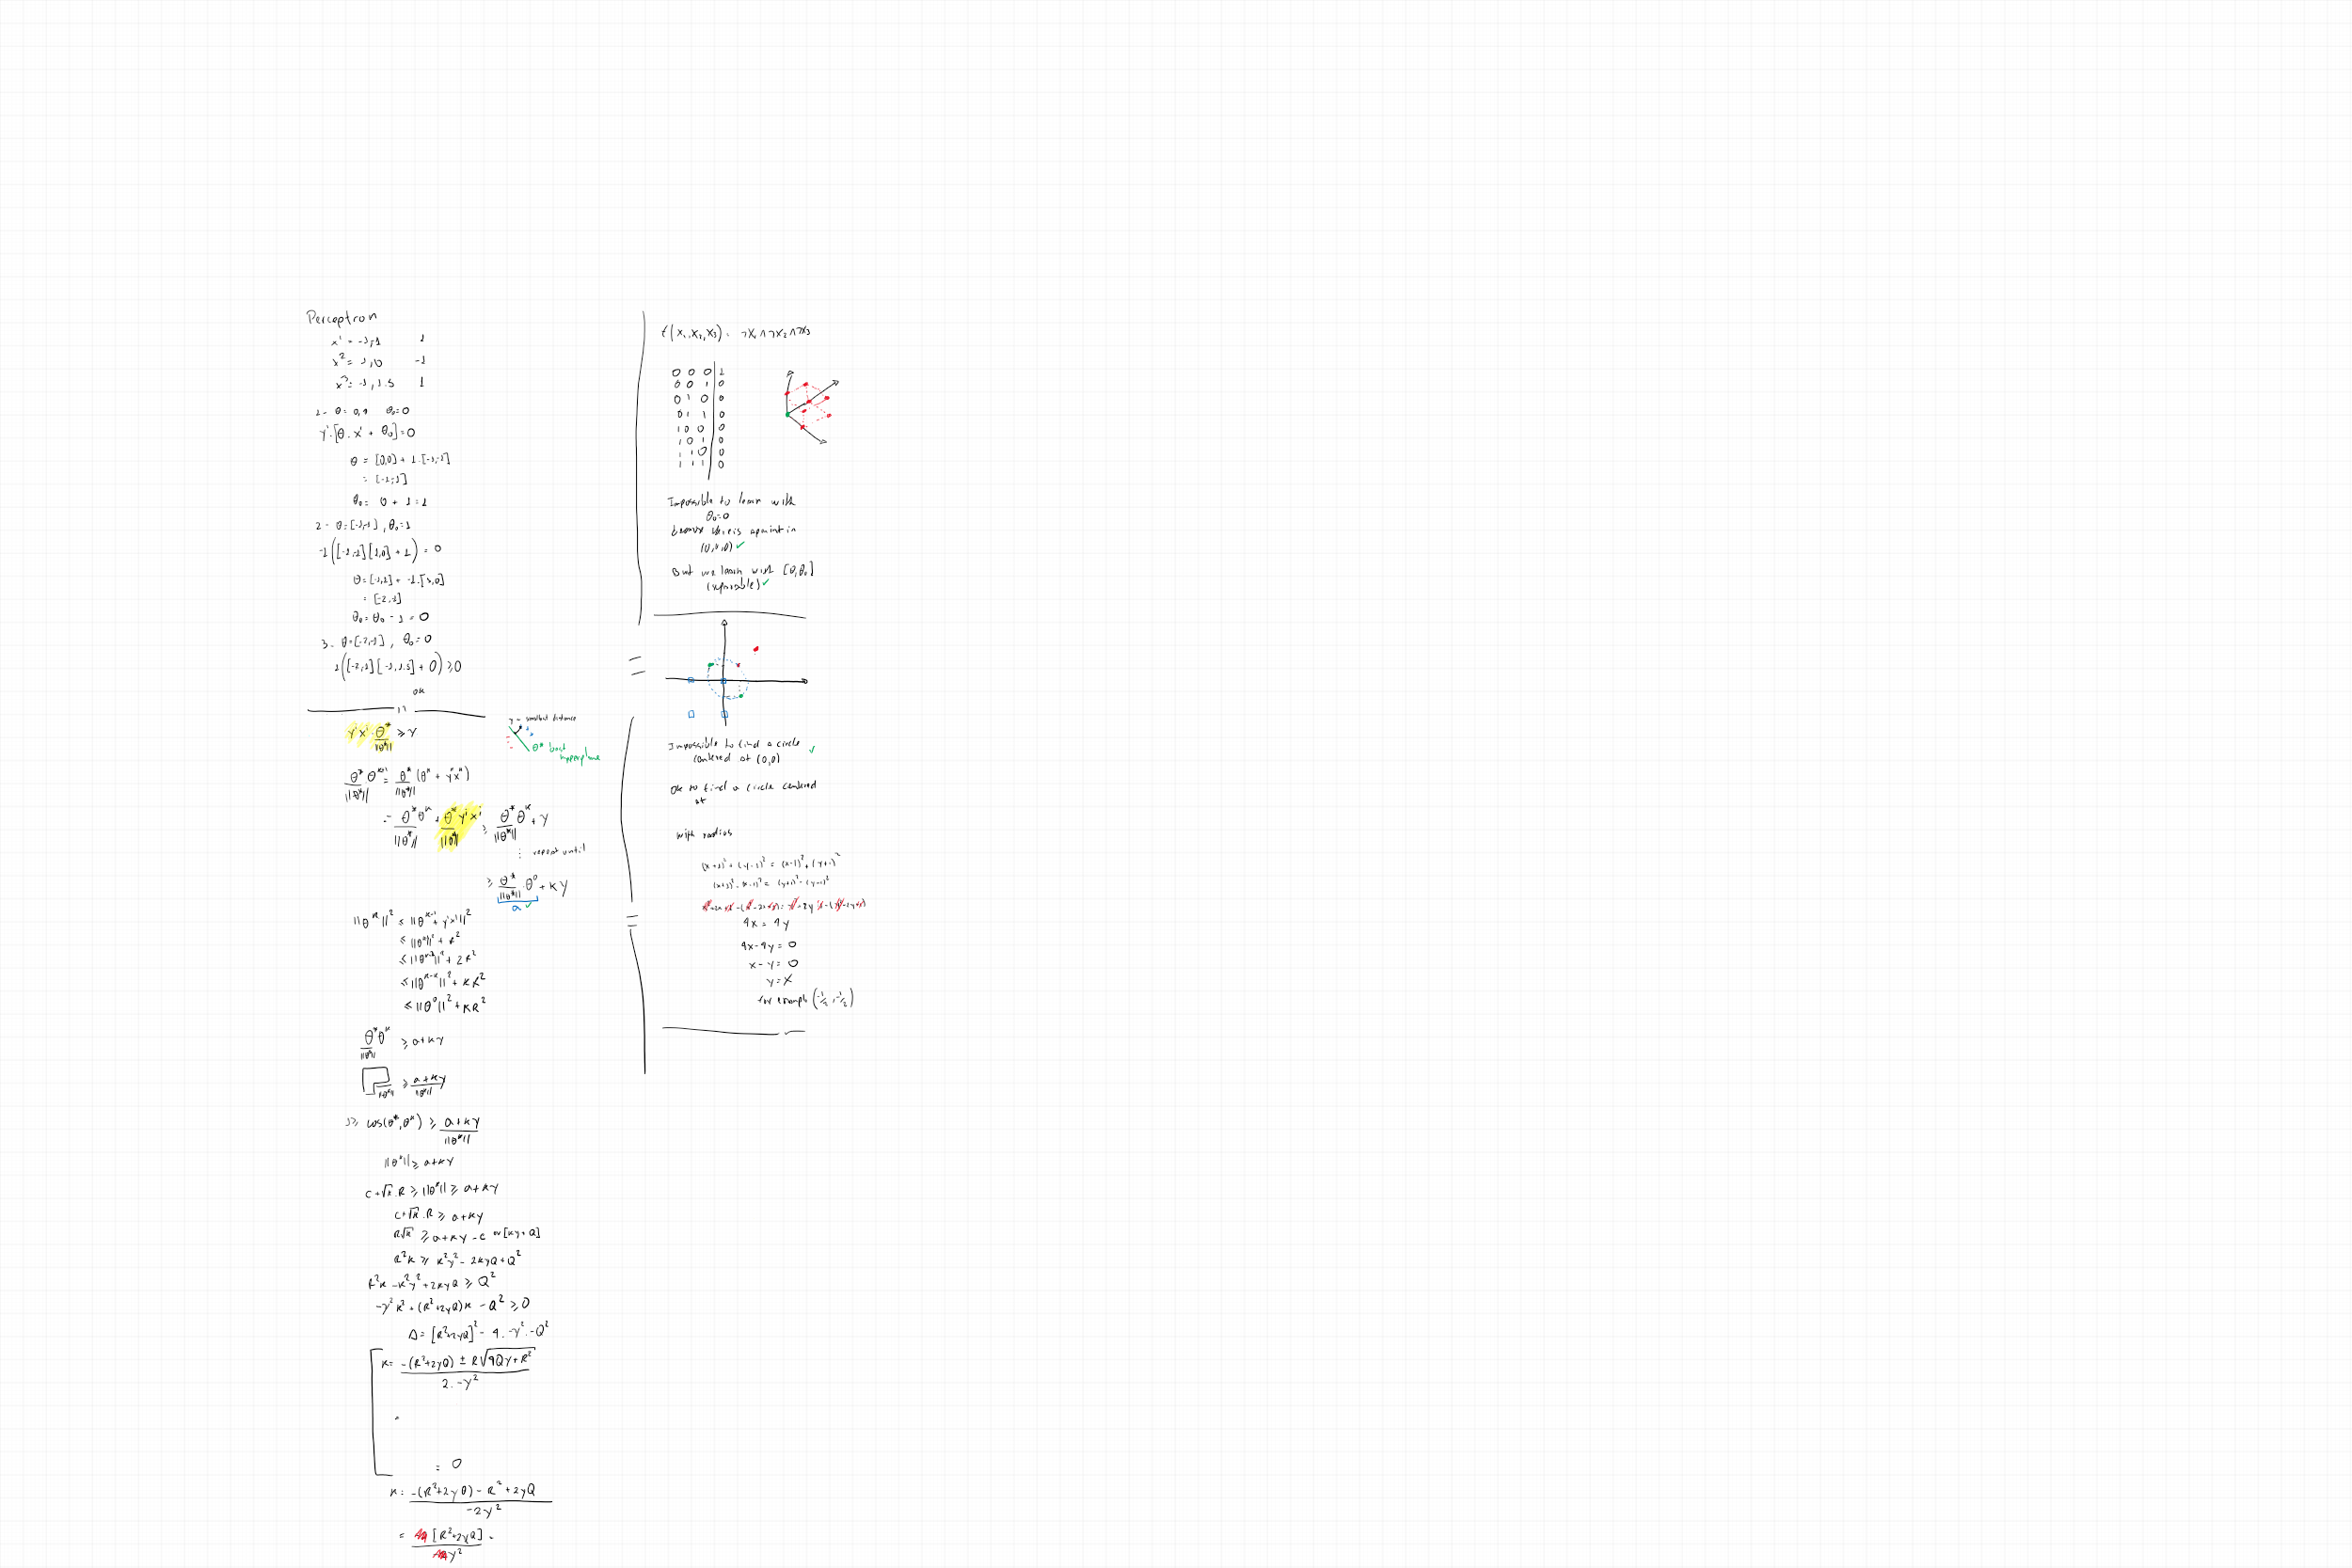 Perceptron
x¹ = -1,-1 1
x² = 1,0 -1
x³ = -1,1.5 1
1- θ = 0,0 θ₀=0
yⁱ·[θ·xⁱ + θ₀] = 0
θ = [0,0] + 1·[-1,-1]
= [-1,-1]
θ₀ = 0 + 1 = 1
2- θ=[-1,-1], θ₀=1
-1([-1,-1][1,0] + 1) = 0
θ = [-1,-1] + -1·[1,0]
= [-2,-1]
θ₀ = θ₀ - 1 = 0
3- θ=[-2,-1], θ₀=0
1([-2,-1][-1,1.5] + 0) ≥ 0
ok
yⁱxⁱ·θ*/||θ*|| ≥ γ
γ = smallest distance
θ* best
hyperplane
θ*/||θ*|| θᵏ⁺¹ = θ*/||θ*|| (θᵏ + yⁱxⁱ)
= θ*θᵏ/||θ*|| + θ*yⁱxⁱ/||θ*|| ≥ θ*θᵏ/||θ*|| + γ
⋮ repeat until
≥ θ*/||θ*||·θ⁰ + kγ
a ✓
||θᵏ||² ≤ ||θᵏ⁻¹ + yⁱxⁱ||²
≤ ||θᵏ⁻¹||² + R²
≤ ||θᵏ⁻²||² + 2R²
≤ ||θᵏ⁻ᵏ||² + kR²
≤ ||θ⁰||² + kR²
θ*θᵏ/||θ*|| ≥ a+kγ
≥ a+kγ/||θᵏ||
1 ≥ cos(θ*,θᵏ) ≥ a+kγ/||θᵏ||
||θᵏ|| ≥ a+kγ
c+√k·R ≥ ||θᵏ|| ≥ a+kγ
c+√k·R ≥ a+kγ
R√k ≥ a+kγ-c or [kγ-Q]
R²k ≥ k²γ² - 2kγQ + Q²
R²k - k²γ² + 2kγQ ≥ Q²
-γ²k² + (R²+2γQ)k - Q² ≥ 0
Δ = [R²+2γQ]² - 4·-γ²·-Q²
k = -(R²+2γQ) ± R√4Qγ+R² / 2·-γ²
= 0
k = -(R²+2γQ) - R² + 2γQ / -2γ²
= [R²+2γQ] / γ²
f(x₁,x₂,x₃) = ¬x₁∧¬x₂∧¬x₃
0 0 0 1
0 0 1 0
0 1 0 0
0 1 1 0
1 0 0 0
1 0 1 0
1 1 0 0
1 1 1 0
Impossible to learn with
θ₀=0
because there is a point in
(0,0,0) ✓
But we learn with [θ,θ₀]
(separable) ✓
Impossible to find a circle
centered at (0,0) ✓
Ok to find a circle centered
at
with radius
(x+1)² + (y-1)² = (x-1)² + (y+1)²
(x+1)² - (x-1)² = (y+1)² - (y-1)²
4x = 4y
4x-4y = 0
x-y = 0
y = x
for example (-1/2, -1/2)